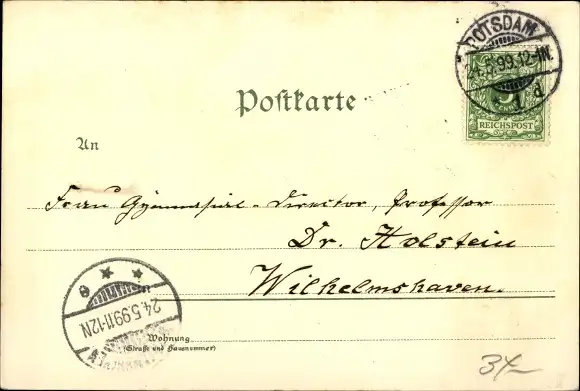 POTSDAM
24.5.99.12-1N.
1 d
5
REICHSPOST
Postkarte
An
Frau Gymnasial-Director, Professor
Dr. Holstein
Wilhelmshaven.
24.5.99.11-12N
Wohnung
(Straße und Hausnummer)
34-